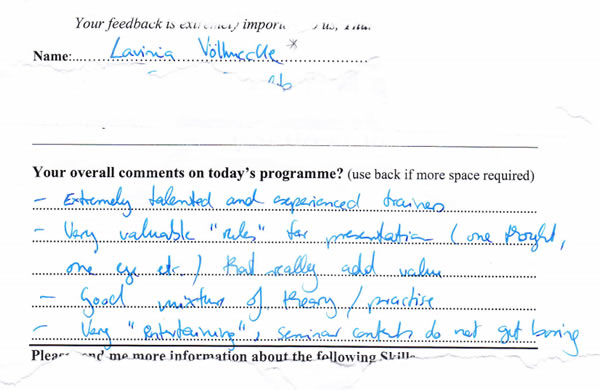 Your feedback is extremely import us,
Name: Lavinia
Your overall comments on today's programme? (use back if more space required)
- Extremely talented and experienced trainer
- Very valuable "rules" for presentation (one thought,
one eye etc.) that really add value
- Good mixture of theory / practise
- Very "entertaining", seminar contents do not get boring
Please send me more information about the following Skills